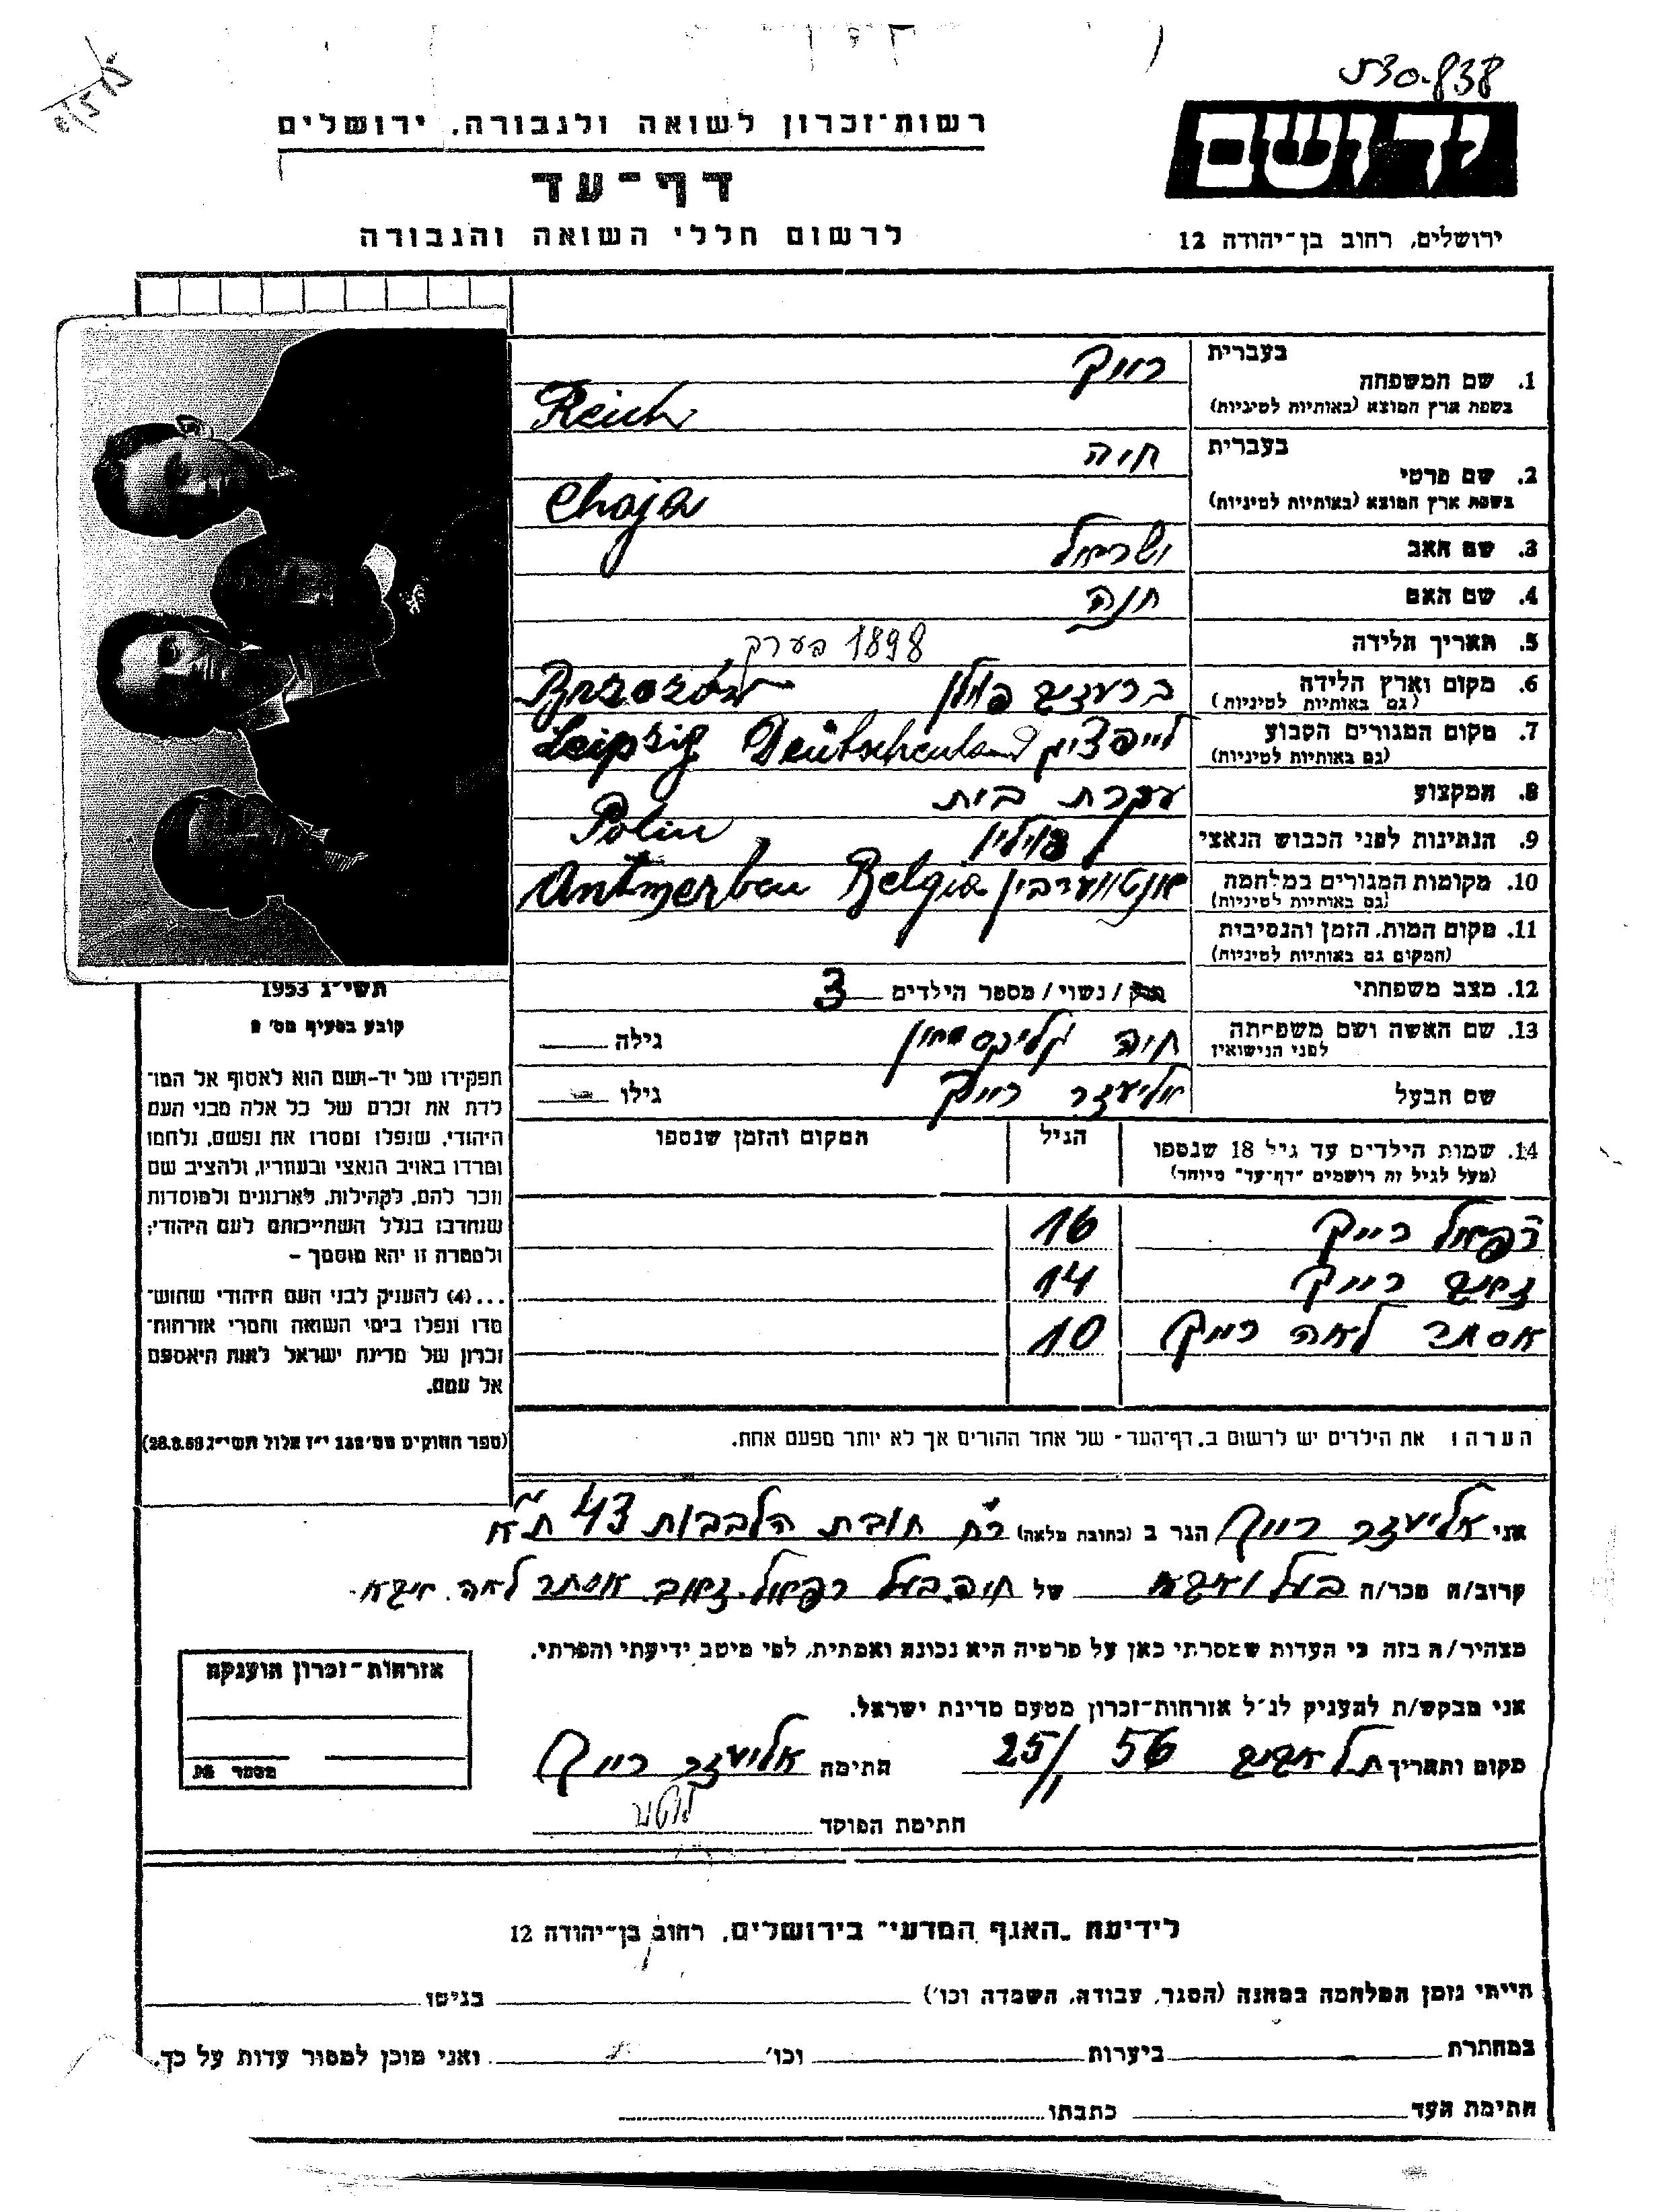 530-838
רשות־זכרון לשואה ולגבורה. ירושלים
יד ושם
דף־עד
לרשום חללי השואה והגבורה
ירושלים, רחוב בן־יהודה 12
בעברית
רייך
1. שם המשפחה
בשפת ארץ המוצא (באותיות לטיניות)
Reich
בעברית
חיה
2. שם פרטי
בשפת ארץ המוצא (באותיות לטיניות)
Chaja
3. שם האב ישראל
4. שם האם חנה
5. תאריך הלידה 1898 בערך
6. מקום וארץ הלידה
(גם באותיות לטיניות)
פולין Brzozów
7. מקום המגורים הקבוע
(גם באותיות לטיניות)
לייפציג Leipzig Deütschenland
8. המקצוע עקרת בית
9. הנתינות לפני הכבוש הנאצי פוילין Polin
10. מקומות המגורים במלחמה
(גם באותיות לטיניות)
אנטווערבין Antwerben Belgia
11. מקום המות, הזמן והנסיבות
(המקום גם באותיות לטיניות)
12. מצב משפחתי רוק / נשוי / מספר הילדים 3
13. שם האשה ושם משפחתה
לפני הנישואין
חיה גילה
שם הבעל אליעזר רייך גילו
14. שמות הילדים עד גיל 18 שנספו
(מעל לגיל זה רושמים "דף־עד" מיוחד)
הגיל
המקום והזמן שנספו
רפאל רייך 16
זאב רייך 14
אסתר לאה רייך 10
הערה: את הילדים יש לרשום ב.דף־העד־ של אחד ההורים אך לא יותר מפעם אחת.
תשי״ג 1953
קובע בסעיף מס׳ 2
תפקידו של יד-ושם הוא לאסוף אל המו־
לדת את זכרם של כל אלה מבני העם
היהודי, שנפלו ומסרו את נפשם, נלחמו
ומרדו באויב הנאצי ובעוזריו, ולהציב שם
וזכר להם, לקהילות, לארגונים ולמוסדות
שנחרבו בגלל השתייכותם לעם היהודי;
ולמטרה זו יהא מוסמך –
...(4) להעניק לבני העם היהודי שהוש־
מדו ונפלו בימי השואה והמרי אזרחות־
זכרון של מדינת ישראל לאות היאספם
אל עמם.
(ספר החוקים מס׳ 132 י״ז אלול תשי״ג 28.8.53)
אני אליעזר רייך הגר ב (כתובת מלאה) רח׳ חובת הלבבות 43 ת״א
קרוב/ה מכר/ה בעל ואבא של חיה בעל רפאל. זאב. אסתר לאה. אבא.
מצהיר/ה בזה כי העדות שמסרתי כאן על פרטיה היא נכונה ואמתית, לפי מיטב ידיעתי והכרתי.
אני מבקש/ת להעניק לנ״ל אזרחות־זכרון מטעם מדינת ישראל.
מקום ותאריך תל אביב 25/11 56 חתימה אליעזר רייך
חתימת הפוקד
אזרחות־זכרון הוענקה
מספר
לידיעת "האגף המדעי" בירושלים, רחוב בן־יהודה 12
הייתי בזמן המלחמה במחנה (הסגר, עבודה, השמדה וכו׳) בגיטו
במחתרת ביערות וכו׳ ואני מוכן למסור עדות על כך.
חתימת העד כתבתו